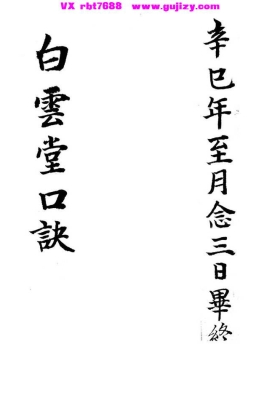 VX rbt7688 www.gujizy.com
辛巳年至月念三日畢終
白雲堂口訣